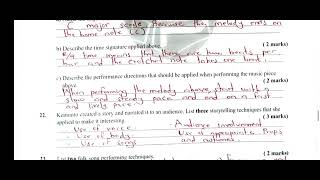 C major scale because the melody ends on
the home note (C)
(2 marks)
b) Describe the time signature applied above.
time means that there are beats per
bar and the crotchet note takes one beat.
(2 marks)
c) Describe the performance directions that should be applied when performing the music piece
above.
(2 marks)
When performing the melody above start with a
slow and steady pace and end on a fast
and lively pace
22. Kemunto created a story and narrated it to an audience. List three storytelling techniques that she
applied to make it interesting.
(3 marks)
Use of voice
Audience involvement
Use of body
Use of appropriate props
and costumes.
Use of songs
List two folk song performing techniques.
(2 marks)